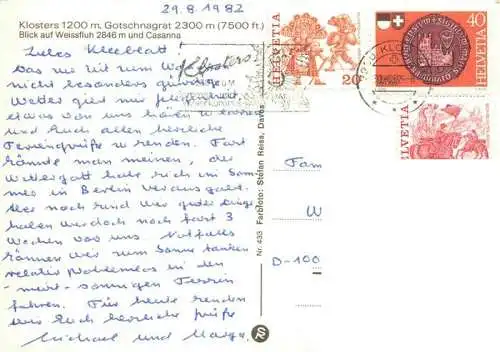 29.8.1982
Klosters 1200 m, Gotschnagrat 2300 m (7500 ft.)
Blick auf Weissfluh 2846 m und Casanna
Liebes Kleeblatt
Das uns zur zum
nicht besonders günstige
Wetter gibt mir Gelegenheit,
etwas von uns hören zu lassen
und Euch allen herzliche
Feriengrüße zu senden. Fast
könnte man meinen, der
Wettergott habe sich im Som-
mer in Berlin verausgabt.
Aber noch sind wir guter Dinge,
haben wir doch noch fast 3
Wochen vor uns. Notfalls
können wir zum Sonne tanken
relativ problemlos in den
-meist- sonnigen Tessin
fahren. Für heute senden
wir Euch herzliche Grüße
Michael und
Nr. 433 Farbfoto: Stefan Reiss, Davos
Klosters
HELVETIA
20
40
HELVETIA
HELVETIA
Fam
W
D-100